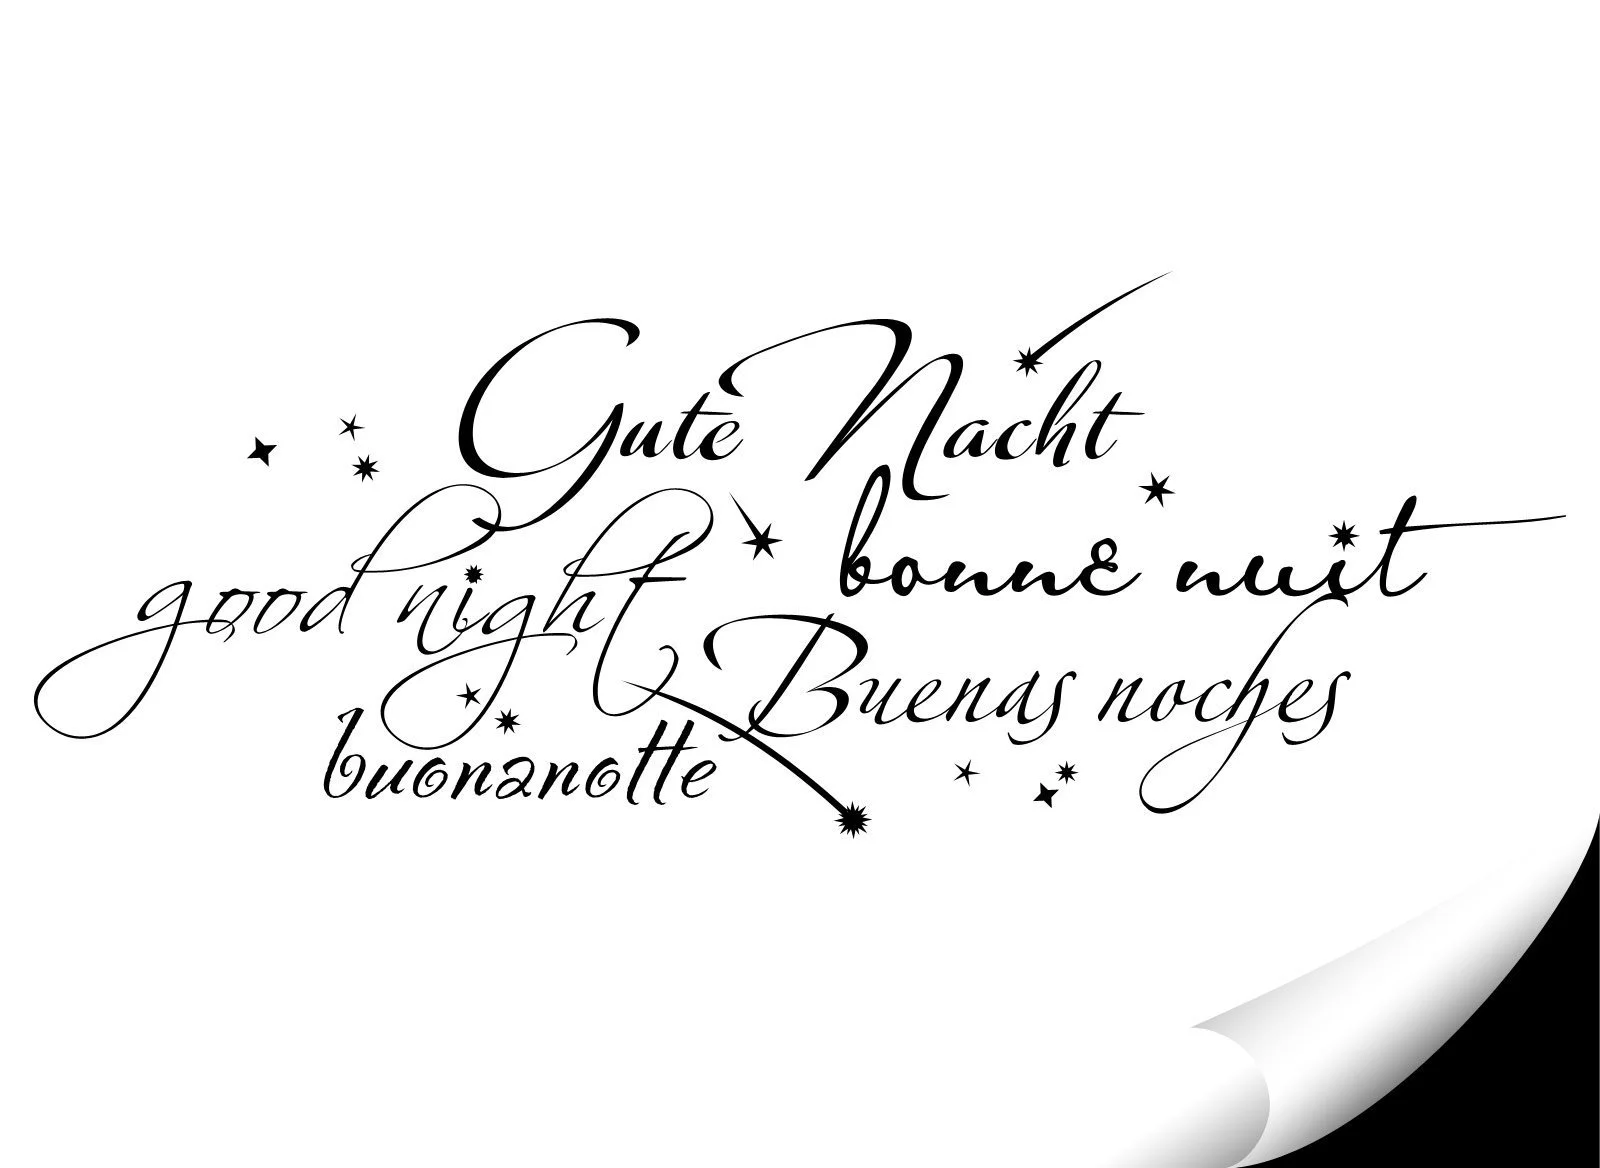 Gute Nacht
good night
bonne nuit
Buenas noches
buonanotte